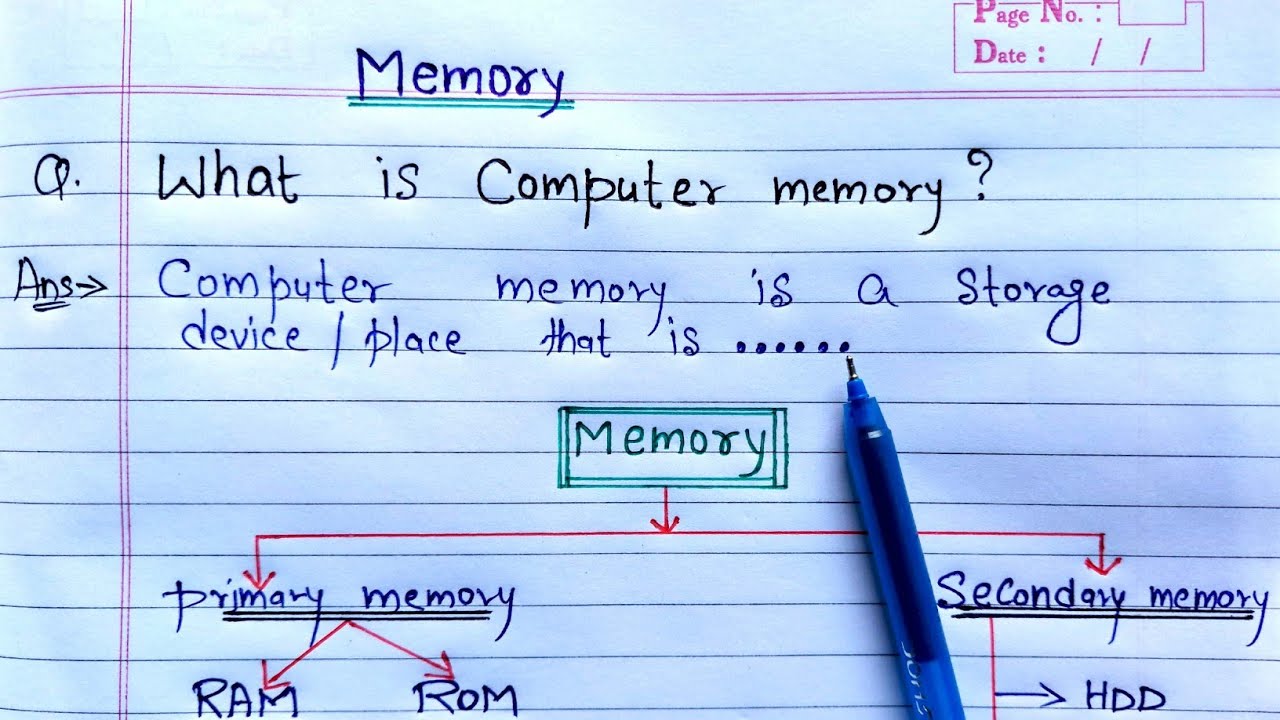 Page No. :
Date : / /
Memory
Q. What is Computer memory?
Ans→ Computer memory is a storage
device/place that is ......
Memory
primary memory Secondary memory
RAM ROM → HDD